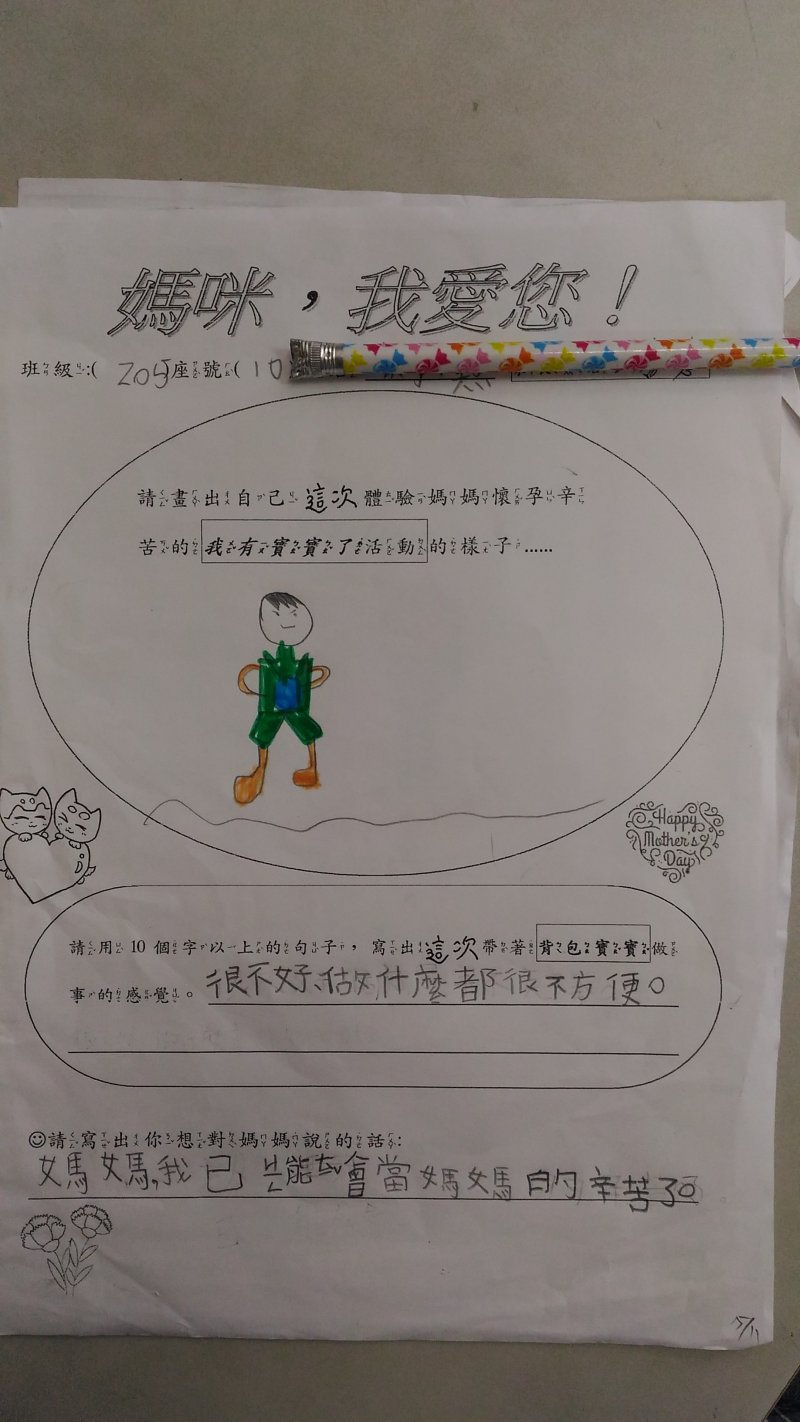 媽咪，我愛您！
班級:( 205 座號( 10
請畫出自己這次體驗媽媽懷孕辛
苦的我有寶寶了活動的樣子……
Happy
Mother's
Day
請用10個字以上的句子，寫出這次帶著背包寶寶做
事的感覺。很不好、做什麼都很不方便。
☺請寫出你想對媽媽說的話:
媽媽,我已ㄐㄧㄥ能ㄊㄧˇ會當媽媽的辛苦了。
5/11